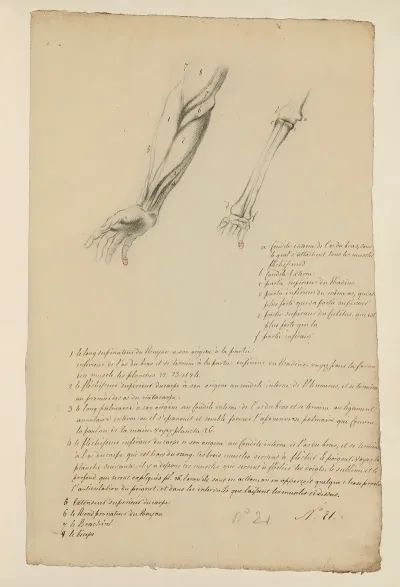 a Condile externe de l'os du bras, dans
lequel s'attachent tous les muscles
fléchisseurs
b Condile interne
c partie supérieure du Radius
d partie inférieure du même os, qui est
plus forte que sa partie supérieure
e partie supérieure du Cubitus, qui est
plus forte que la
f partie inférieure
1 le long supinateur du Rayon a son origine à la partie
inférieure de l'os du bras et à la partie inférieure du Radius
ces muscle les planches 12. 13. et 14.
2 le fléchisseur supérieur du carpe a son origine au condile interne de l'Humerus, et se termine
au premier des os du métacarpe.
3 le long palmaire a son origine au Condile interne de l'os du bras et se termine au ligament
annulaire interne où il s'épanouit et semble former l'aponevrose palmaire que couvre
la paulme de la main. voyez planche 26.
4 le fléchisseur inférieur du carpe a son origine au Condile interne de l'os du bras, et se termine
à l'os du carpe qui est hors du rang. ces trois muscles servent à fléchir le poignet. voyez la
planche suivante. il y a dessous ces muscles qui servent à fléchir les doigts, le sublime et le
profond qui seront expliqués pl.
l'articulation du poignet, et dans les intervales que laissent les muscles ci dessus.
5 Extenseur supérieur du carpe
6 le Rond pronateur du Rayon
7 le Brachial
8 le biceps
N° 21
N° 21.